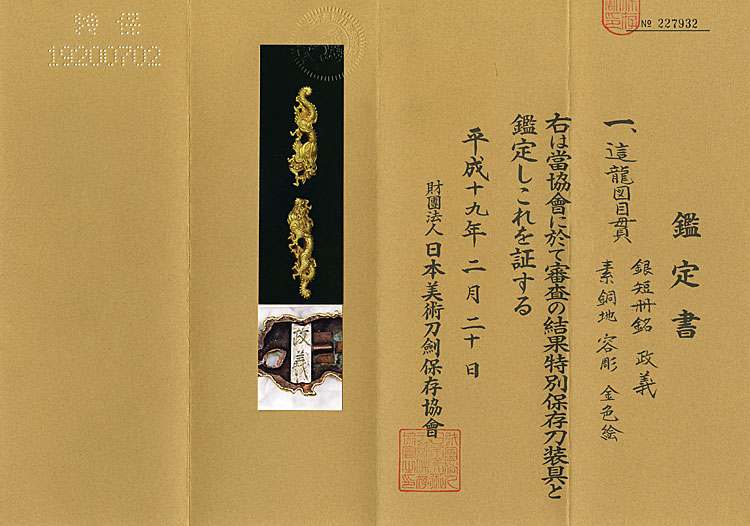 № 227932
鑑定書
一、這龍図目貫
銀短冊銘 政義
素銅地 容彫 金色絵
右は當協會に於て審査の結果特別保存刀装具と
鑑定しこれを証する
平成十九年二月二十日
財團法人日本美術刀劍保存協會
特保
19200702
政義